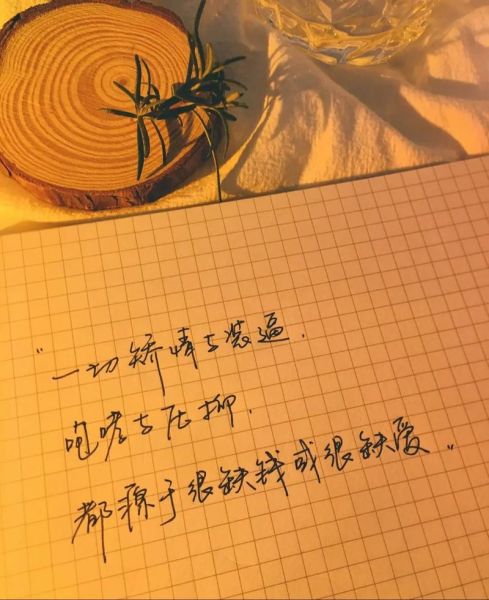 "一切矫情与装逼.
咆哮与压抑.
都源于很缺钱或很缺爱."